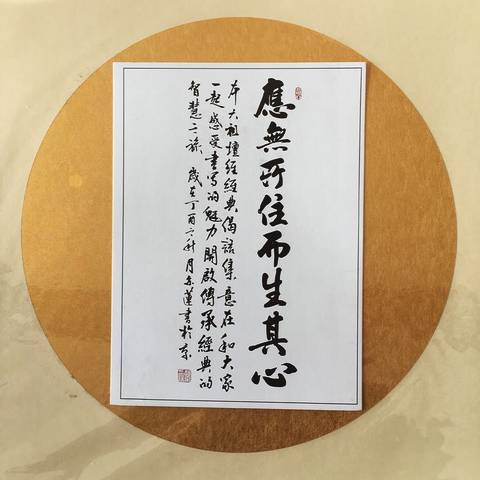 應無所住而生其心
本六祖壇經經典偈語集意在和大家
一起感受書寫的魅力開啟傳承經典的
智慧之旅 歲在丁酉之秋月蓮書於京